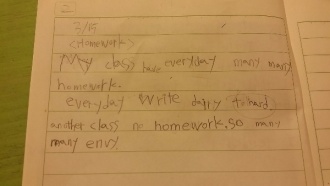 3/15
<Homework>
My class have everyday many many
homework.
everyday write dairy
another class no homework. so many
many envy.